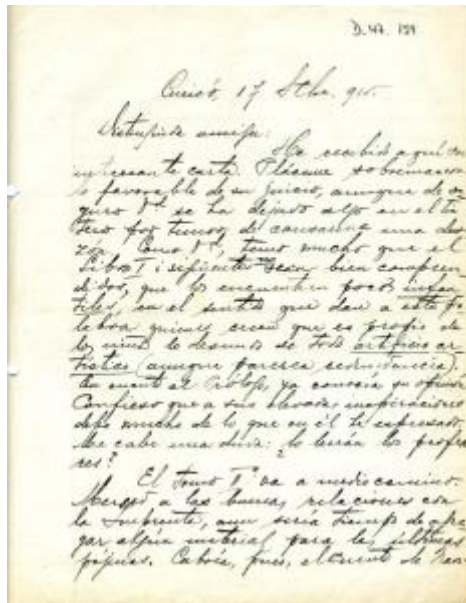 D.47. 159
Curicó, 17 Stbr. 915.
Distinguida amiga:
He recibido aquí su
interesante carta. Pláceme sobremanera
lo favorable de su juicio, aunque de
guro Vd. se ha dejado algo en el tin
tero por temor de causarme una desa
zón. Como Vd., temo mucho que el
Libro I i siguientes sean bien compren
didos, que los encuentren poco infan
tiles, en el sentido que dan a esta pa
labra quienes creen que es propio de
los niños lo desnudo de todo artificio ar
tístico (aunque parezca redundancia).
En cuanto al Prólogo, ya conocía su opinión.
Confieso que a sus elevadas inspiraciones
debo mucho de lo que en él he expresado.
Me cabe una duda: ¿lo leerán los profeso
res?
El tomo II° va a medio camino.
Merced a las buenas relaciones con
la Imprenta, aun sería tiempo de agre
gar algún material para las últimas
páginas. Cabría, pues, el cuento de